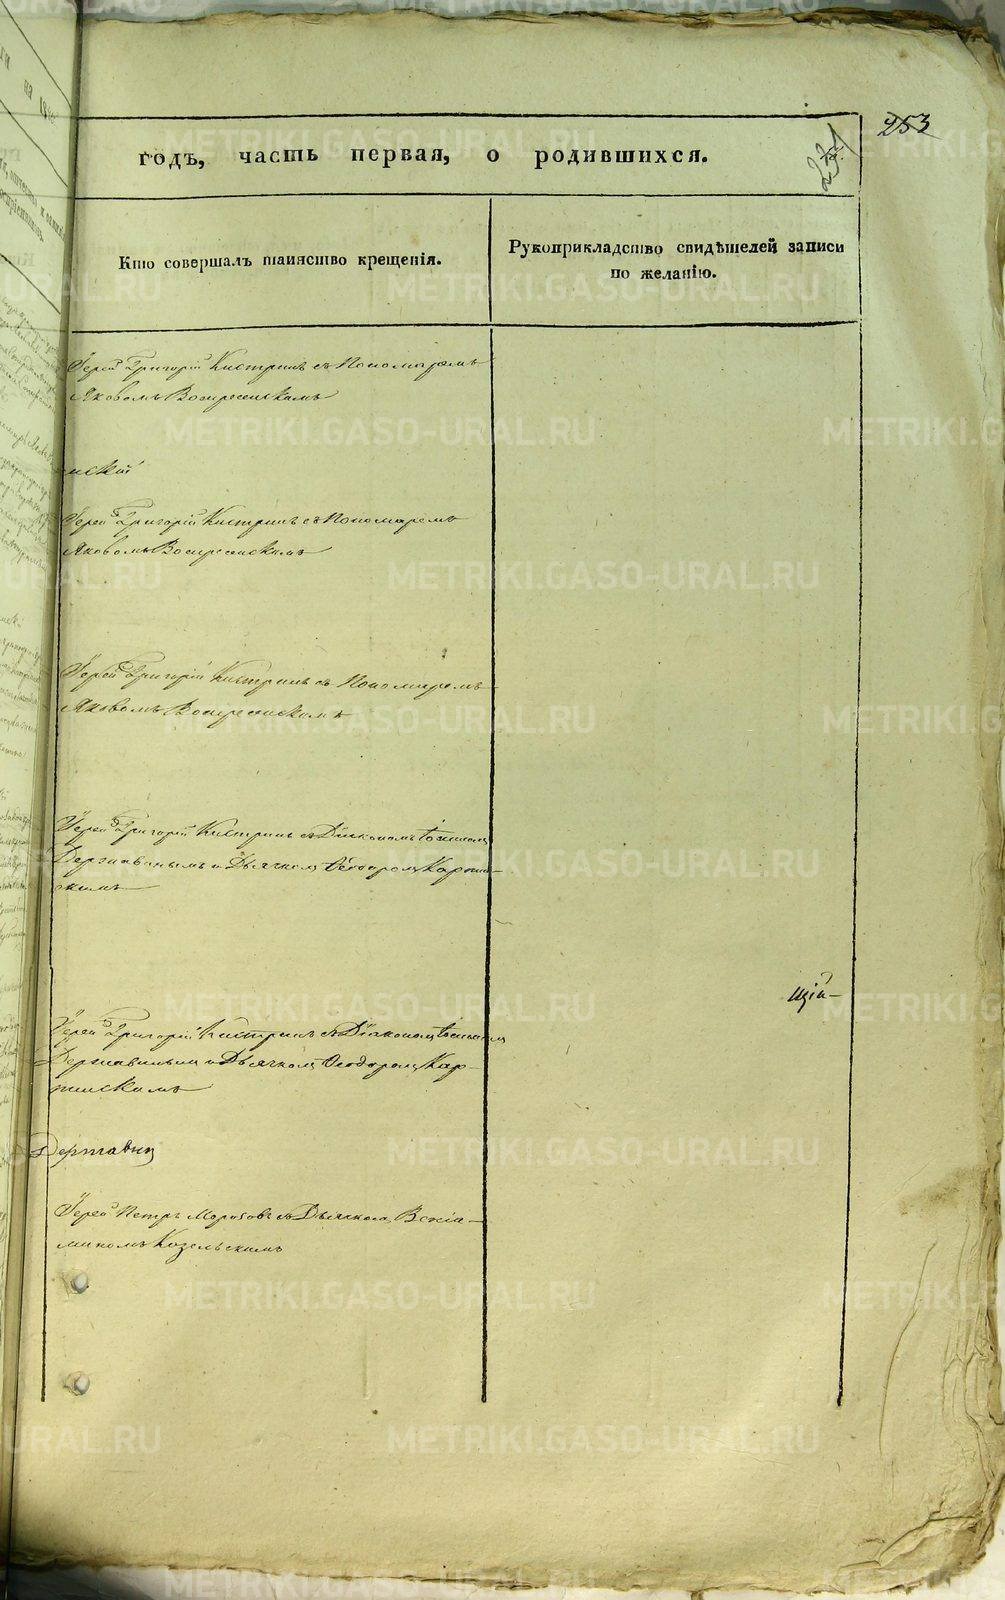 253
годъ, часть первая, о родившихся.
Кто совершалъ таинство крещенія.
Рукоприкладство свидѣтелей записи
по желанію.
Іерей Григорій Кистринъ съ Пономаремъ
Яковомъ Воскресенскимъ
нскій
Іерей Григорій Кистринъ съ Пономаремъ
Яковомъ Воскресенскимъ
Іерей Григорій Кистринъ съ Пономаремъ
Яковомъ Воскресенскимъ
Іерей Григорій Кистринъ съ Діакономъ
Державинымъ и Дьячкомъ Ѳеодоромъ Карпин-
скимъ
щій
Іерей Григорій Кистринъ съ Діакономъ
Державинымъ и Дьячкомъ Ѳеодоромъ Кар-
пинскимъ
Державин
Іерей Петръ Моротовъ съ Дьячкомъ Веніа-
миномъ Козельскимъ
METRIKI.GASO-URAL.RU